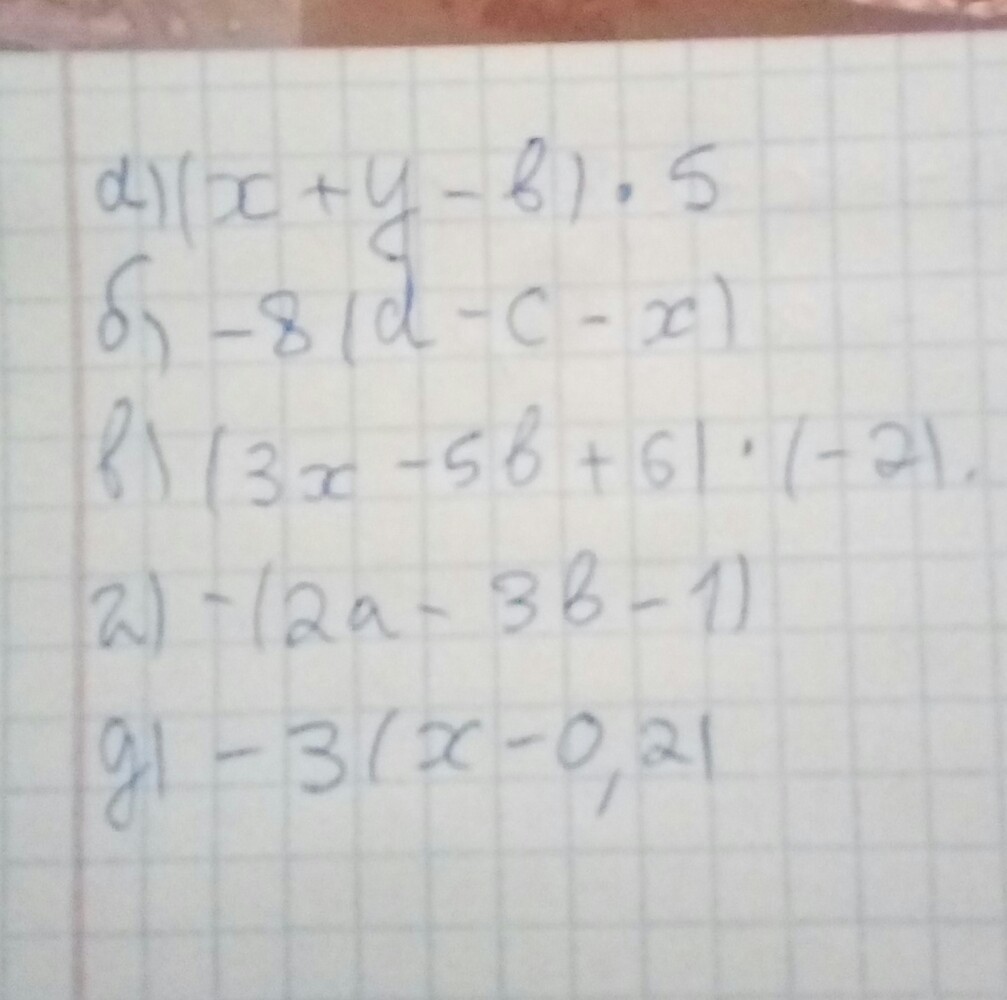 а) (x + y - b) · 5
б) -8 (d - c - x)
в) (3x - 5b + 6) · (-2).
г) -(2a - 3b - 1)
д) -3 (x - 0,2)